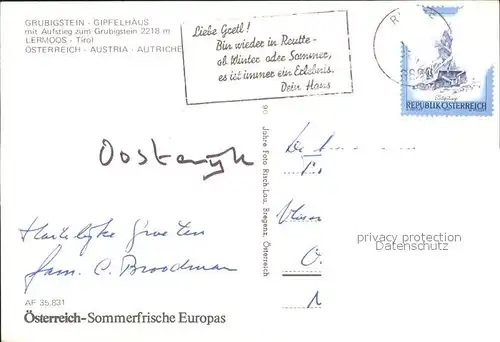 GRUBIGSTEIN - GIPFELHAUS
mit Aufstieg zum Grubigstein 2218 m
LERMOOS - Tirol
ÖSTERREICH - AUSTRIA - AUTRICHE
Liebe Gretl!
Bin wieder in Reutte -
ob Winter oder Sommer,
es ist immer ein Erlebnis.
Dein Hans
REPUBLIK ÖSTERREICH
Oostenryk
Hartelyke Groeten
fam. C. Broodman
90 Jahre Foto Risch-Lau, Bregenz, Österreich
privacy protection
Datenschutz
AF 35.831
Österreich-Sommerfrische Europas